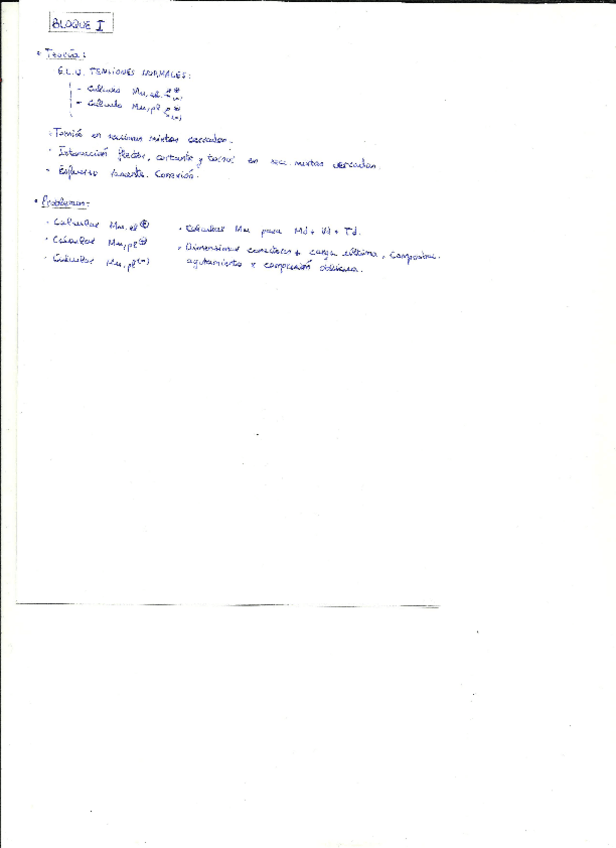 BLOQUE I
• Teoría:
E.L.U. TENSIONES NORMALES:
- Cálculo Mu,el (+) (-)
- Cálculo Mu,pl (+) (-)
· Torsión en secciones mixtas cerradas.
· Interacción flector, cortante y torsor en secc. mixtas cerradas.
· Esfuerzo rasante. Conexión.
• Problemas:
· Calcular Mu,el (+)
· Calcular Mu,pl (+)
· Calcular Mu,pl (-)
· Calcular Mu para Md + Vd + Td.
· Dimensionar conectores + carga última, comprobar.
agotamiento x compresión oblicua.